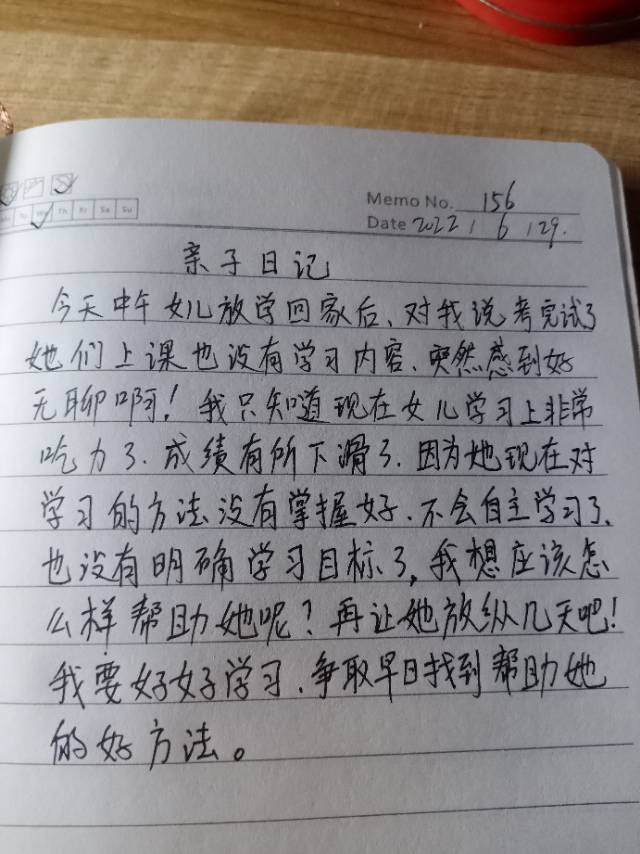 Memo No. 156
Tu We Th Fr Sa Su
Date 2022 / 6 / 29.
亲子日记
今天中午女儿放学回家后、对我说考完试了
她们上课也没有学习内容、突然感到好
无聊啊！我只知道现在女儿学习上非常
吃力了、成绩有所下滑了、因为她现在对
学习的方法没有掌握好、不会自主学习了、
也没有明确学习目标了，我想应该怎
么样帮助她呢？再让她放纵几天吧！
我要好好学习、争取早日找到帮助她
的好方法。